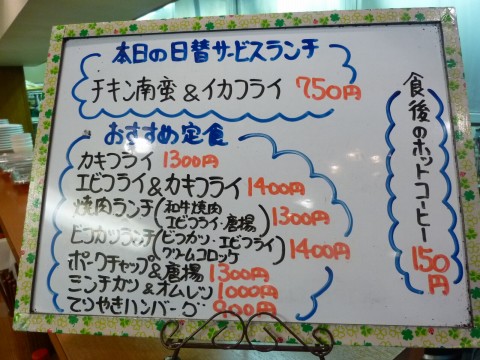 本日の日替サービスランチ
チキン南蛮&イカフライ 750円
おすすめ定食
カキフライ 1300円
エビフライ&カキフライ 1400円
焼肉ランチ(和牛焼肉 エビフライ・唐揚) 1300円
ビフカツランチ(ビフカツ・エビフライ クリームコロッケ) 1400円
ポークチャップ&唐揚 1300円
ミンチカツ&オムレツ 1000円
てりやきハンバーグ 900円
食後のホットコーヒー 150円